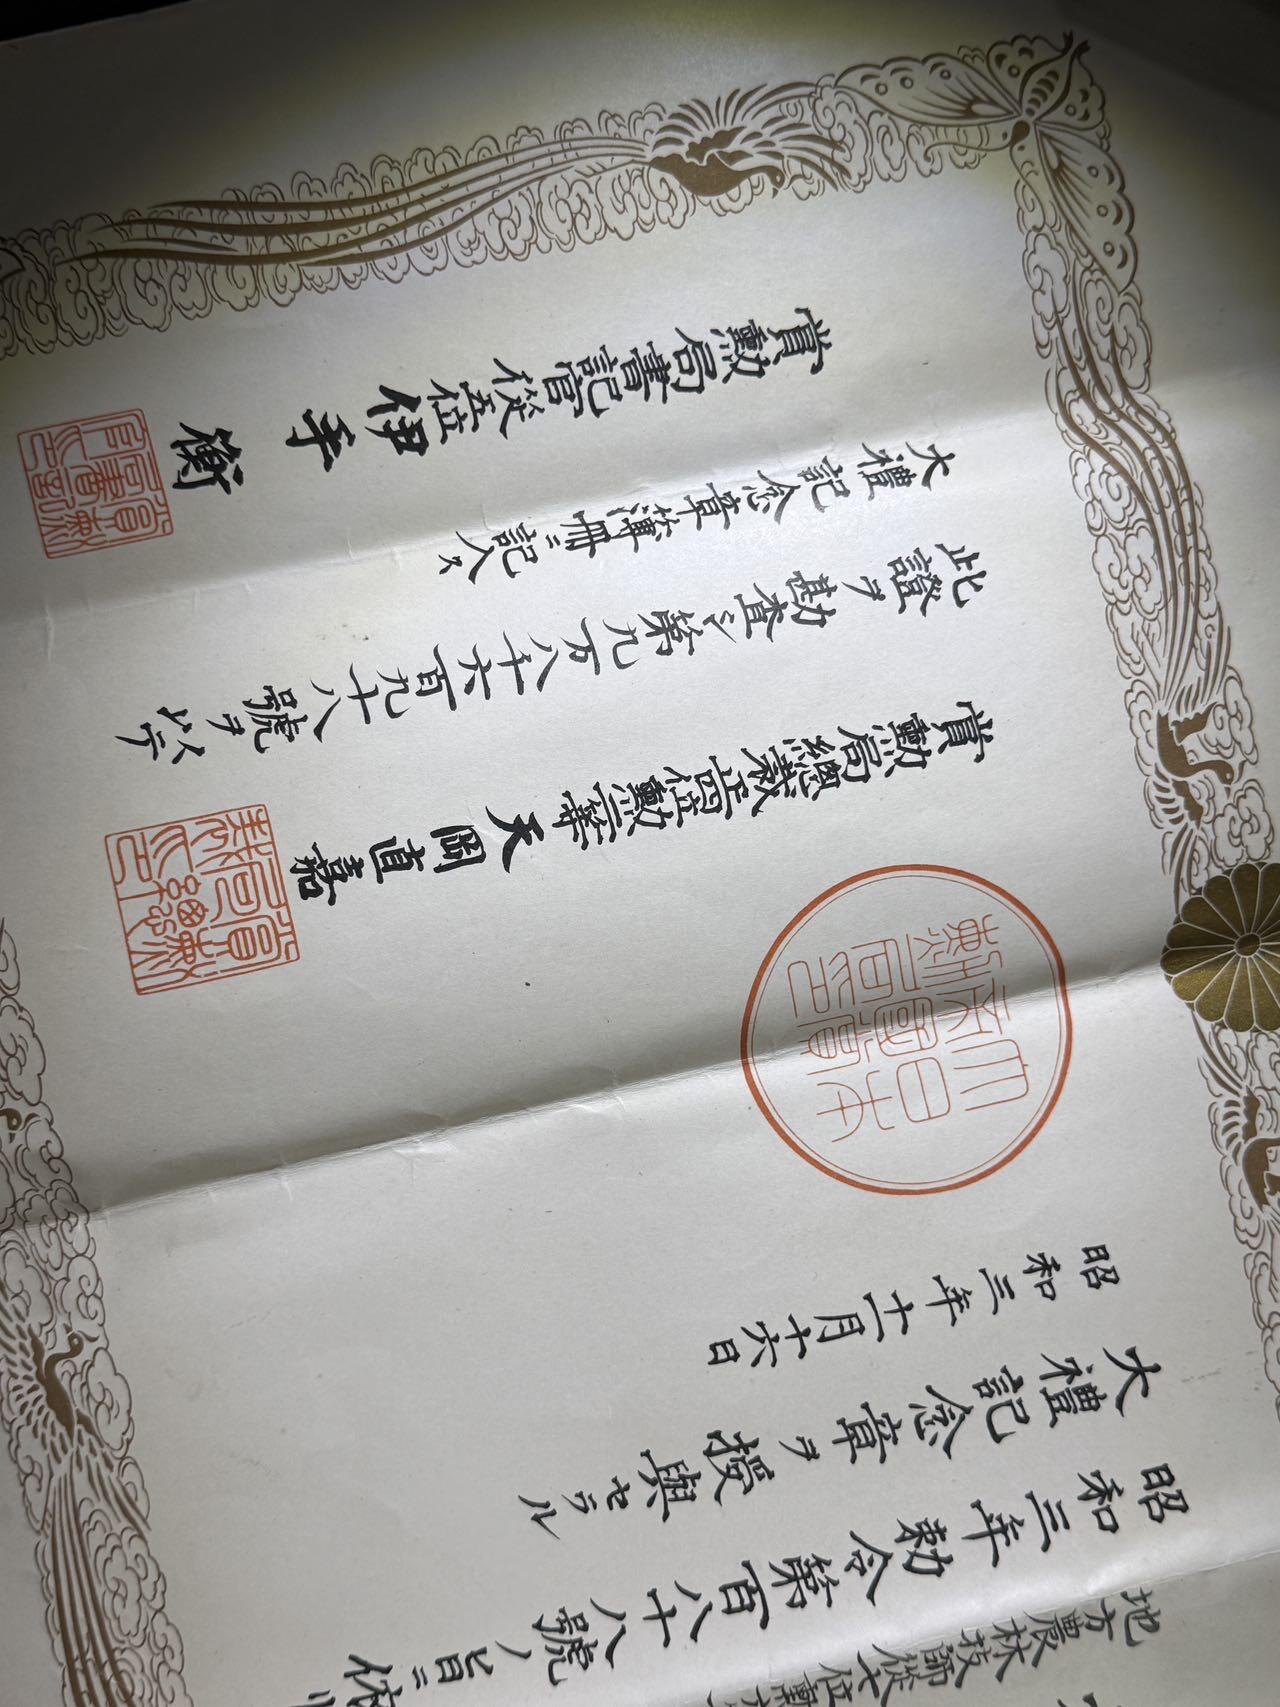 地方農林技師従七位勲
昭和三年勅令第百八十八號ノ旨ニ依リ
大禮記念章ヲ授與セラル
昭和三年十一月十六日
大日本
帝國賞
勲局印
賞勲局總裁正四位勲二等天岡直嘉
此證ヲ勘査シ第九万八千六百九十八號ヲ以テ
大禮記念章簿冊ニ記入ス
賞勲局書記官従五位伊手衡